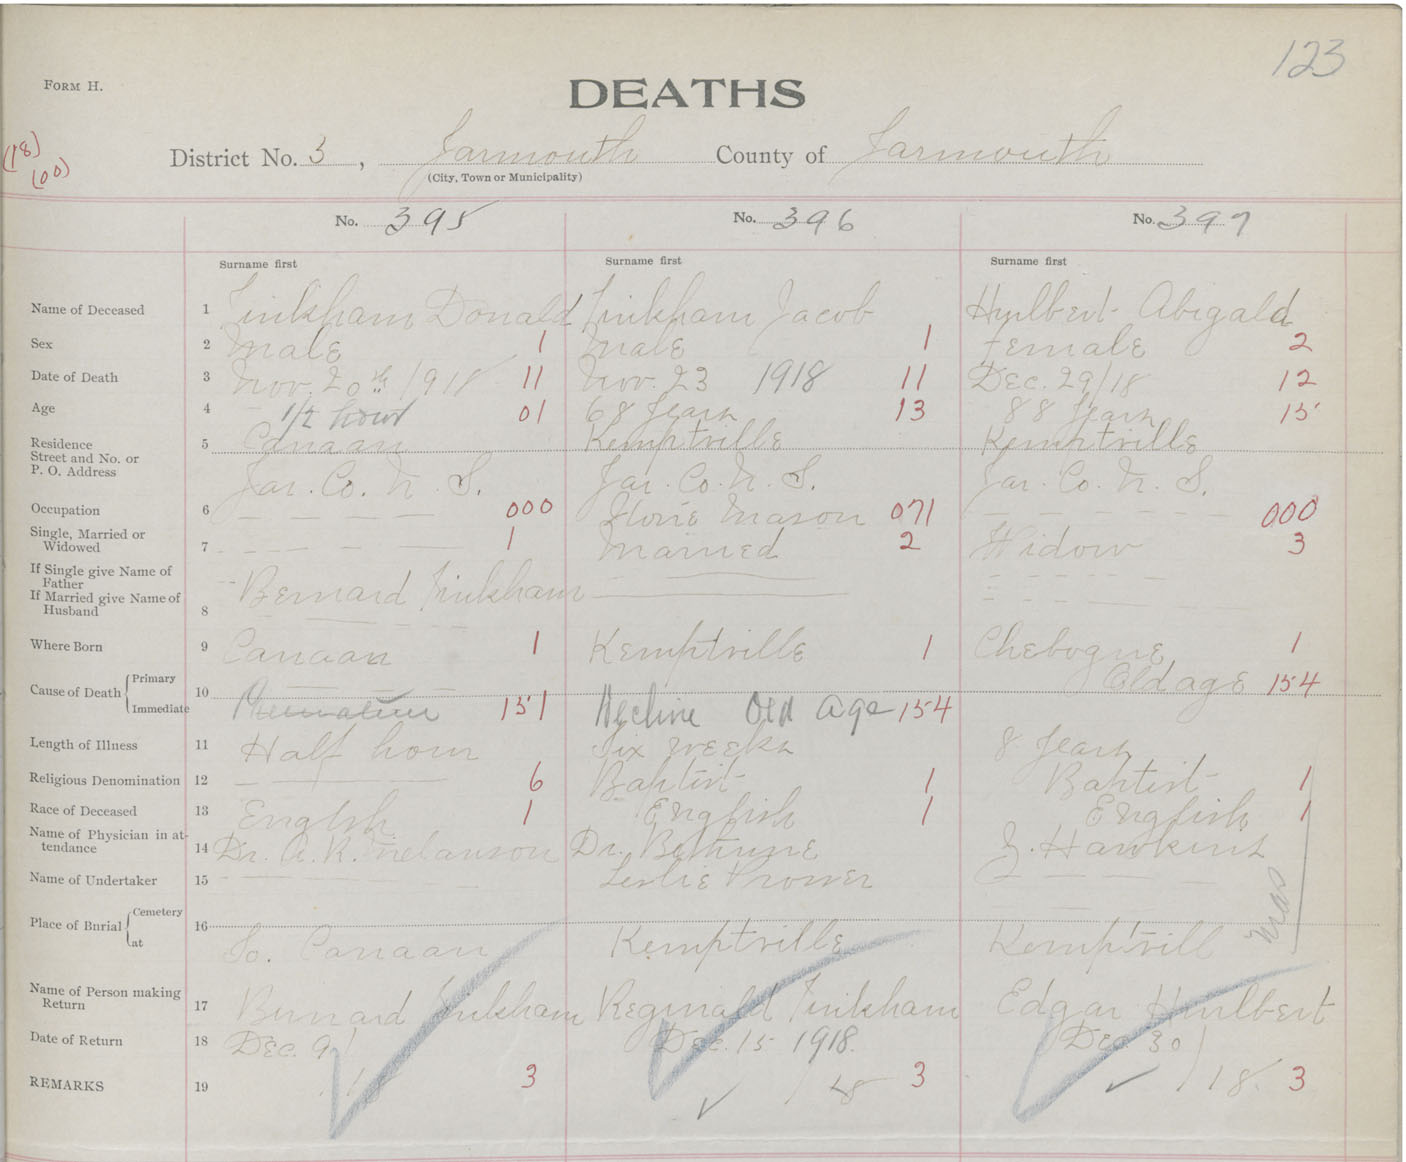 123
FORM H.
DEATHS
(18)
(00)
District No. 3, Yarmouth County of Yarmouth
(City, Town or Municipality)
No. 395 No. 396 No. 397
Surname first Surname first Surname first
Name of Deceased 1 Tinkham Donald Tinkham Jacob Hurlbert Abigald
Sex 2 Male 1 Male 1 Female 2
Date of Death 3 Nov. 20th 1918 11 Nov. 23 1918 11 Dec. 29/18 12
Age 4 1/2 hour 01 68 Years 13 88 Years 15
Residence 5 Canaan Kemptville Kemptville
Street and No. or
P. O. Address Yar. Co. N. S. Yar. Co. N. S. Yar. Co. N. S.
Occupation 6 000 Stone Mason 071 000
Single, Married or
Widowed 7 1 Married 2 Widow 3
If Single give Name of
Father
If Married give Name of
Husband 8 Bernard Tinkham
Where Born 9 Canaan 1 Kemptville 1 Chebogue 1
Cause of Death Primary 10 Old age 154
Immediate Premature 151 Decline Old Age 154
Length of Illness 11 Half hour Six weeks 8 Years
Religious Denomination 12 6 Baptist 1 Baptist 1
Race of Deceased 13 English 1 English 1 English 1
Name of Physician in at-
tendance 14 Dr. A. R. Melanson Dr. Bethune Z. Hawkins
Name of Undertaker 15 Leslie Prosser
Place of Burial Cemetery 16
at So. Canaan Kemptville Kemptvill
Name of Person making
Return 17 Bernard Tinkham Reginald Tinkham Edgar Hurlbert
Date of Return 18 Dec. 9/18 Dec. 15 1918. Dec. 30/18
REMARKS 19 3 /18 3 3